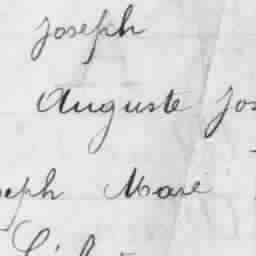 Joseph
Auguste Jos
seph Marie